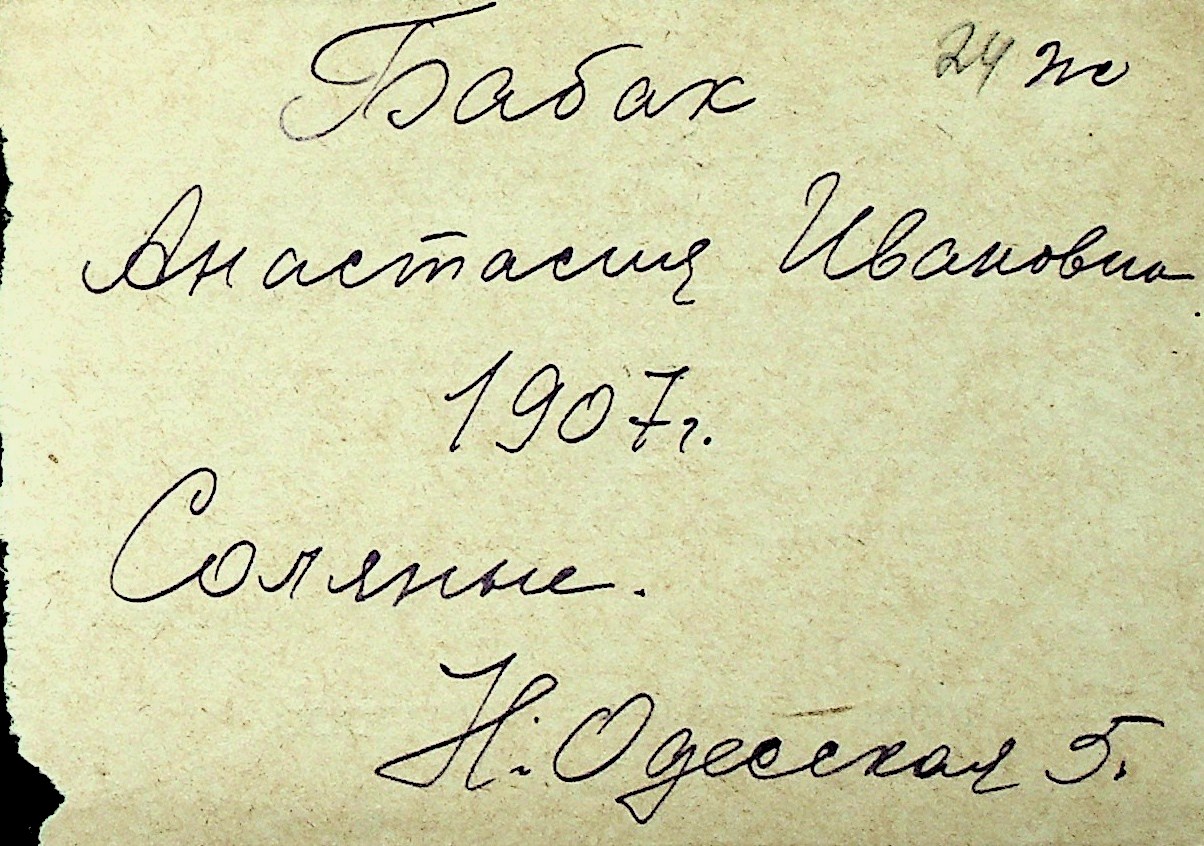 Бабак 24 ж
Анастасия Ивановна
1907г.
Соляные.
Н. Одесская 5.